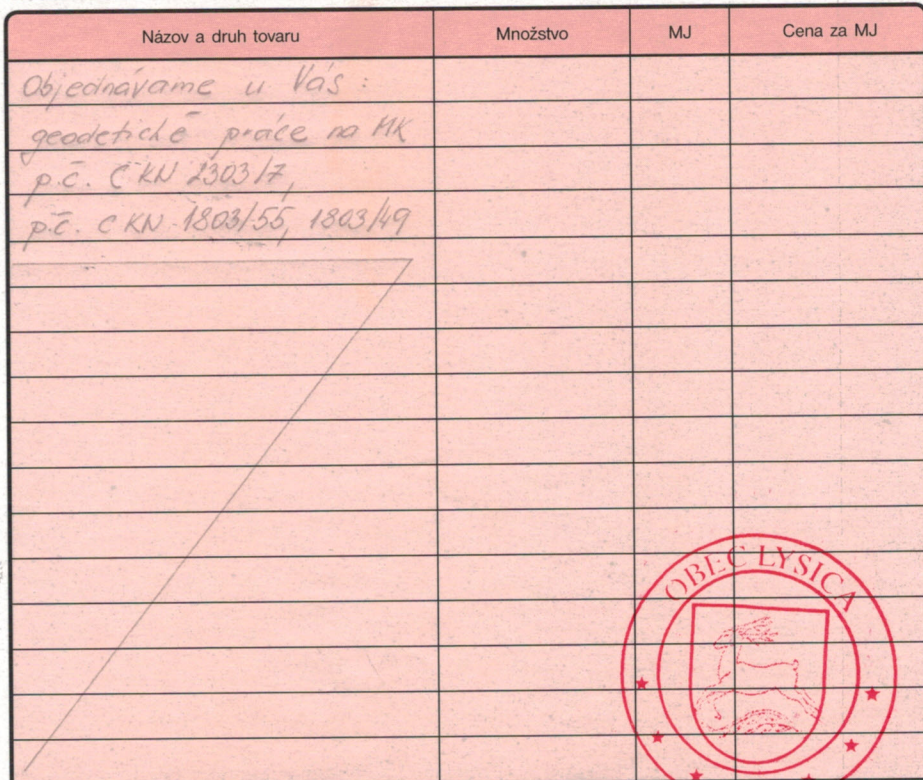 Názov a druh tovaru Množstvo MJ Cena za MJ
Objednávame u Vás :
geodetické práce na MK
p.č. C KN 2303/7,
p.č. C KN 1803/55, 1803/49
OBEC LYSICA